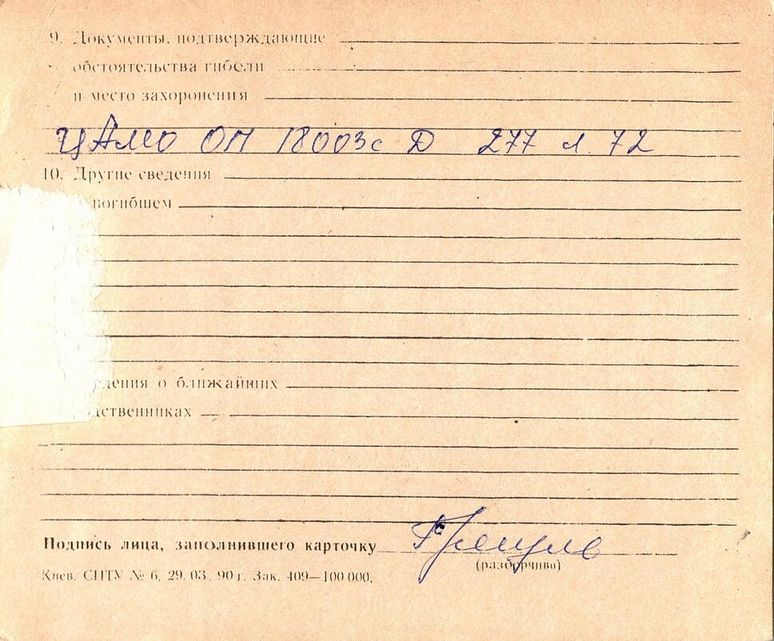 9. Документы, подтверждающие
обстоятельства гибели
и место захоронения
ЦАМО ОП 18003с Д 277 л 72
10. Другие сведения
погибшем
дения о ближайших
дственниках
Подпись лица, заполнившего карточку
(разборчиво)
Киев. СПТУ № 6. 29. 03. 90 г. Зак. 409—100 000.